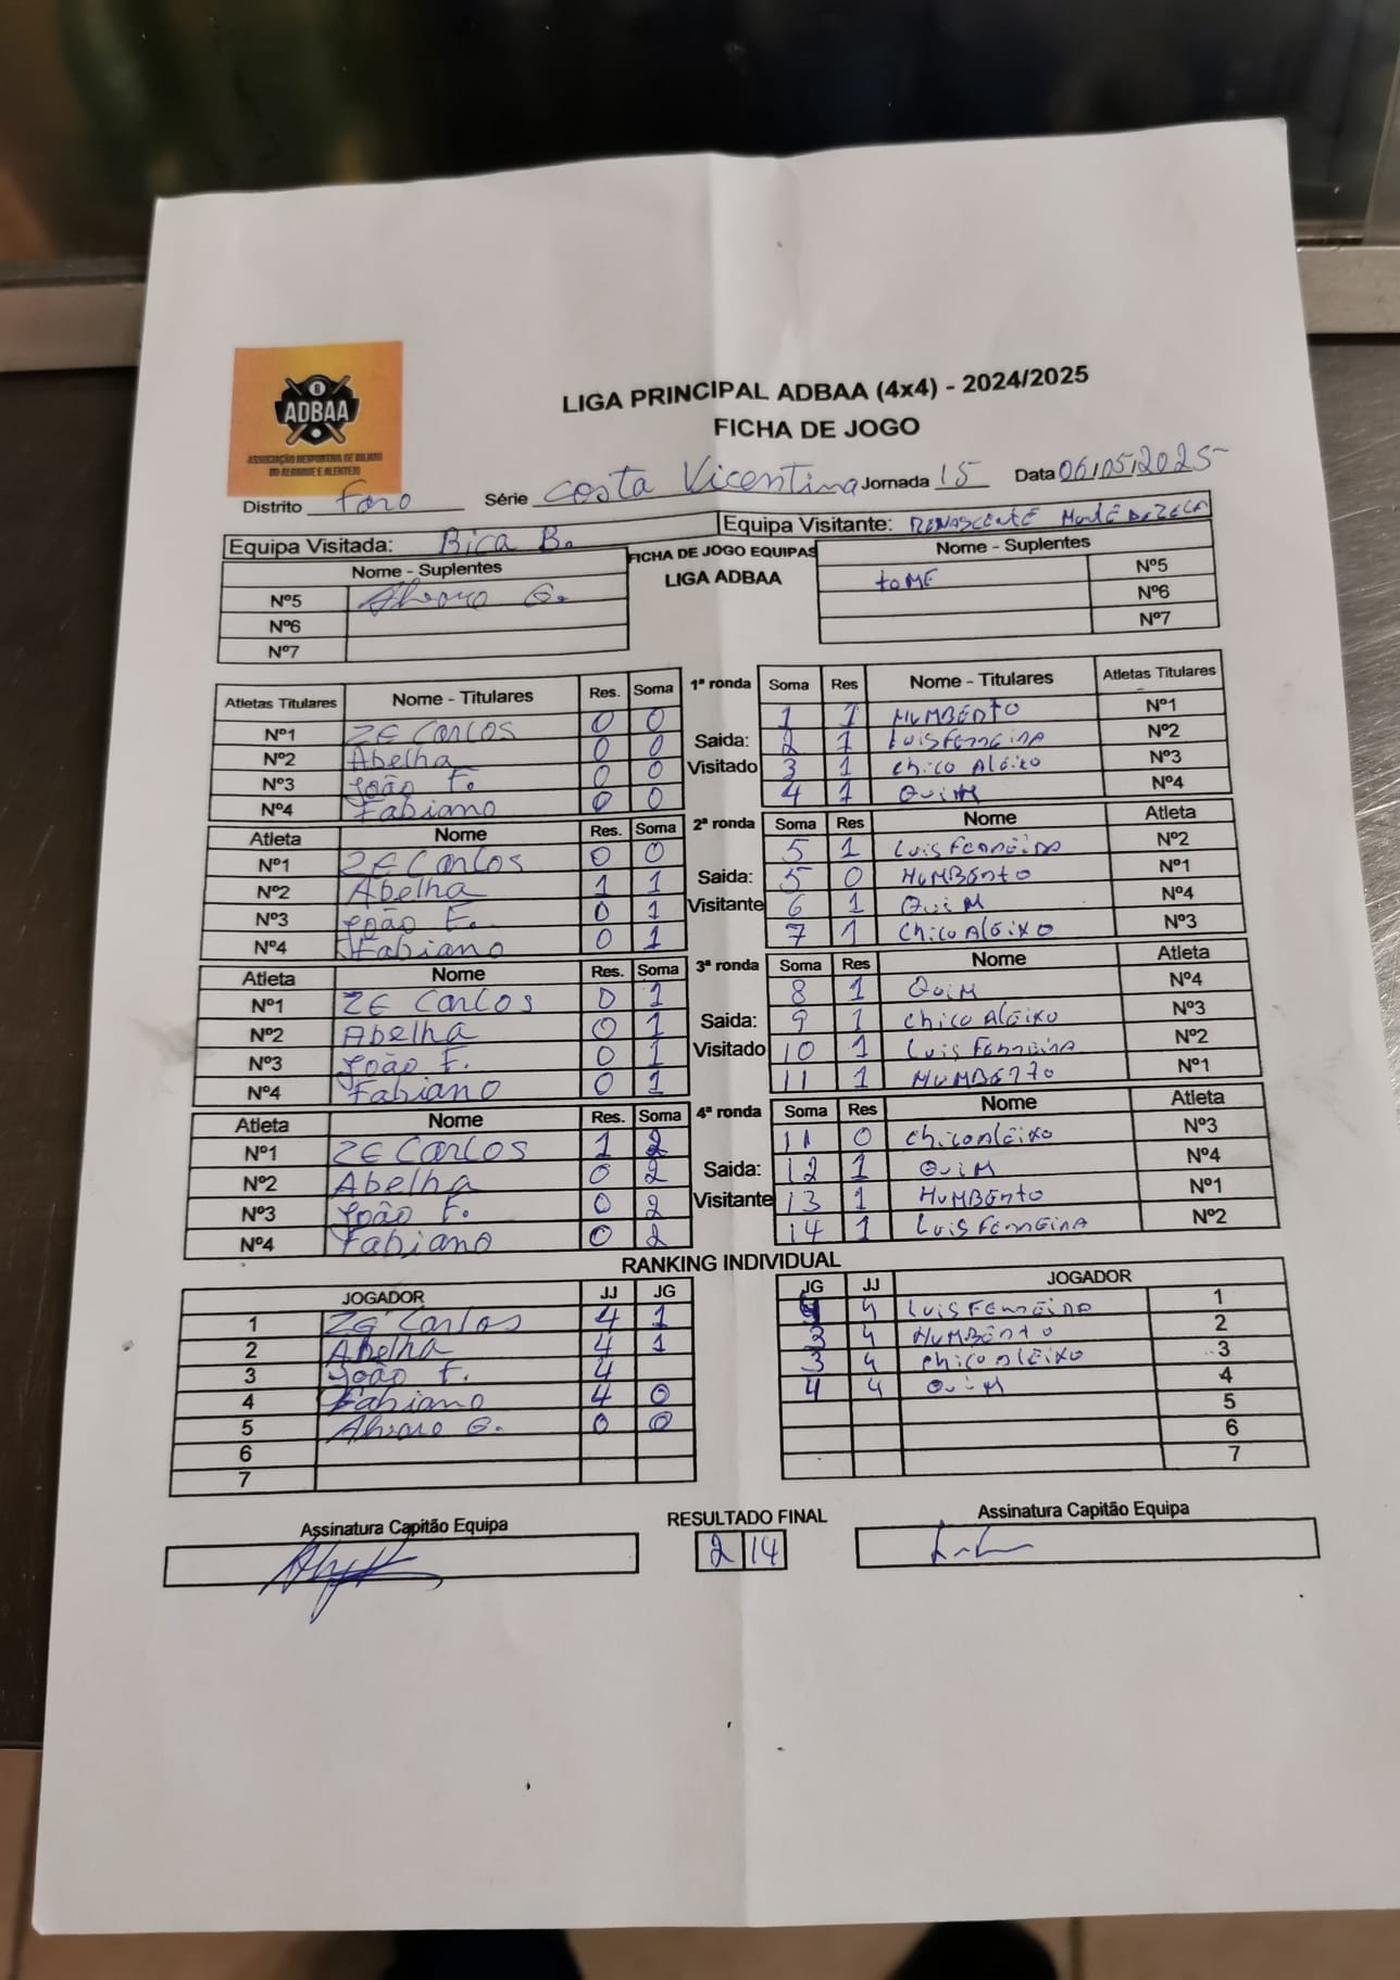 8
ADBAA
ASSOCIAÇÃO DESPORTIVA DE BILHAR
DO ALGARVE E ALENTEJO
LIGA PRINCIPAL ADBAA (4x4) - 2024/2025
FICHA DE JOGO
Distrito Faro Série Costa Vicentina Jornada 15 Data 06/05/2025
Equipa Visitada: Bica B. Equipa Visitante: RENASCENTE
Nome - Suplentes FICHA DE JOGO EQUIPAS Nome - Suplentes
Nº5 Alvaro G. LIGA ADBAA tomé Nº5
Nº6 Nº6
Nº7 Nº7
Atletas Titulares Nome - Titulares Res. Soma 1ª ronda Soma Res Nome - Titulares Atletas Titulares
Nº1 ZE Carlos 0 0 1 1 HUMBERTO Nº1
Nº2 Abelha 0 0 Saida: 2 1 Luis Ferreira Nº2
Nº3 João F. 0 0 Visitado 3 1 Chico Aleixo Nº3
Nº4 Fabiano 0 0 4 1 QuiM Nº4
Atleta Nome Res. Soma 2ª ronda Soma Res Nome Atleta
Nº1 ZE Carlos 0 0 5 1 Luis Ferreira Nº2
Nº2 Abelha 1 1 Saida: 5 0 HUMBERTO Nº1
Nº3 João F. 0 1 Visitante 6 1 QuiM Nº4
Nº4 Fabiano 0 1 7 1 Chico Aleixo Nº3
Atleta Nome Res. Soma 3ª ronda Soma Res Nome Atleta
Nº1 ZE Carlos 0 1 8 1 QuiM Nº4
Nº2 Abelha 0 1 Saida: 9 1 Chico Aleixo Nº3
Nº3 João F. 0 1 Visitado 10 1 Luis Ferreira Nº2
Nº4 Fabiano 0 1 11 1 HUMBERTO Nº1
Atleta Nome Res. Soma 4ª ronda Soma Res Nome Atleta
Nº1 ZE Carlos 1 2 11 0 Chico Aleixo Nº3
Nº2 Abelha 0 2 Saida: 12 1 QuiM Nº4
Nº3 João F. 0 2 Visitante 13 1 HUMBERTO Nº1
Nº4 Fabiano 0 2 14 1 Luis Ferreira Nº2
RANKING INDIVIDUAL
JOGADOR JJ JG JG JJ JOGADOR
1 Zé Carlos 4 1 4 Luis Ferreira 1
2 Abelha 4 1 3 4 HUMBERTO 2
3 João F. 4 3 4 Chico Aleixo 3
4 Fabiano 4 0 4 4 QuiM 4
5 Alvaro G. 0 0 5
6 6
7 7
Assinatura Capitão Equipa RESULTADO FINAL Assinatura Capitão Equipa
2 14